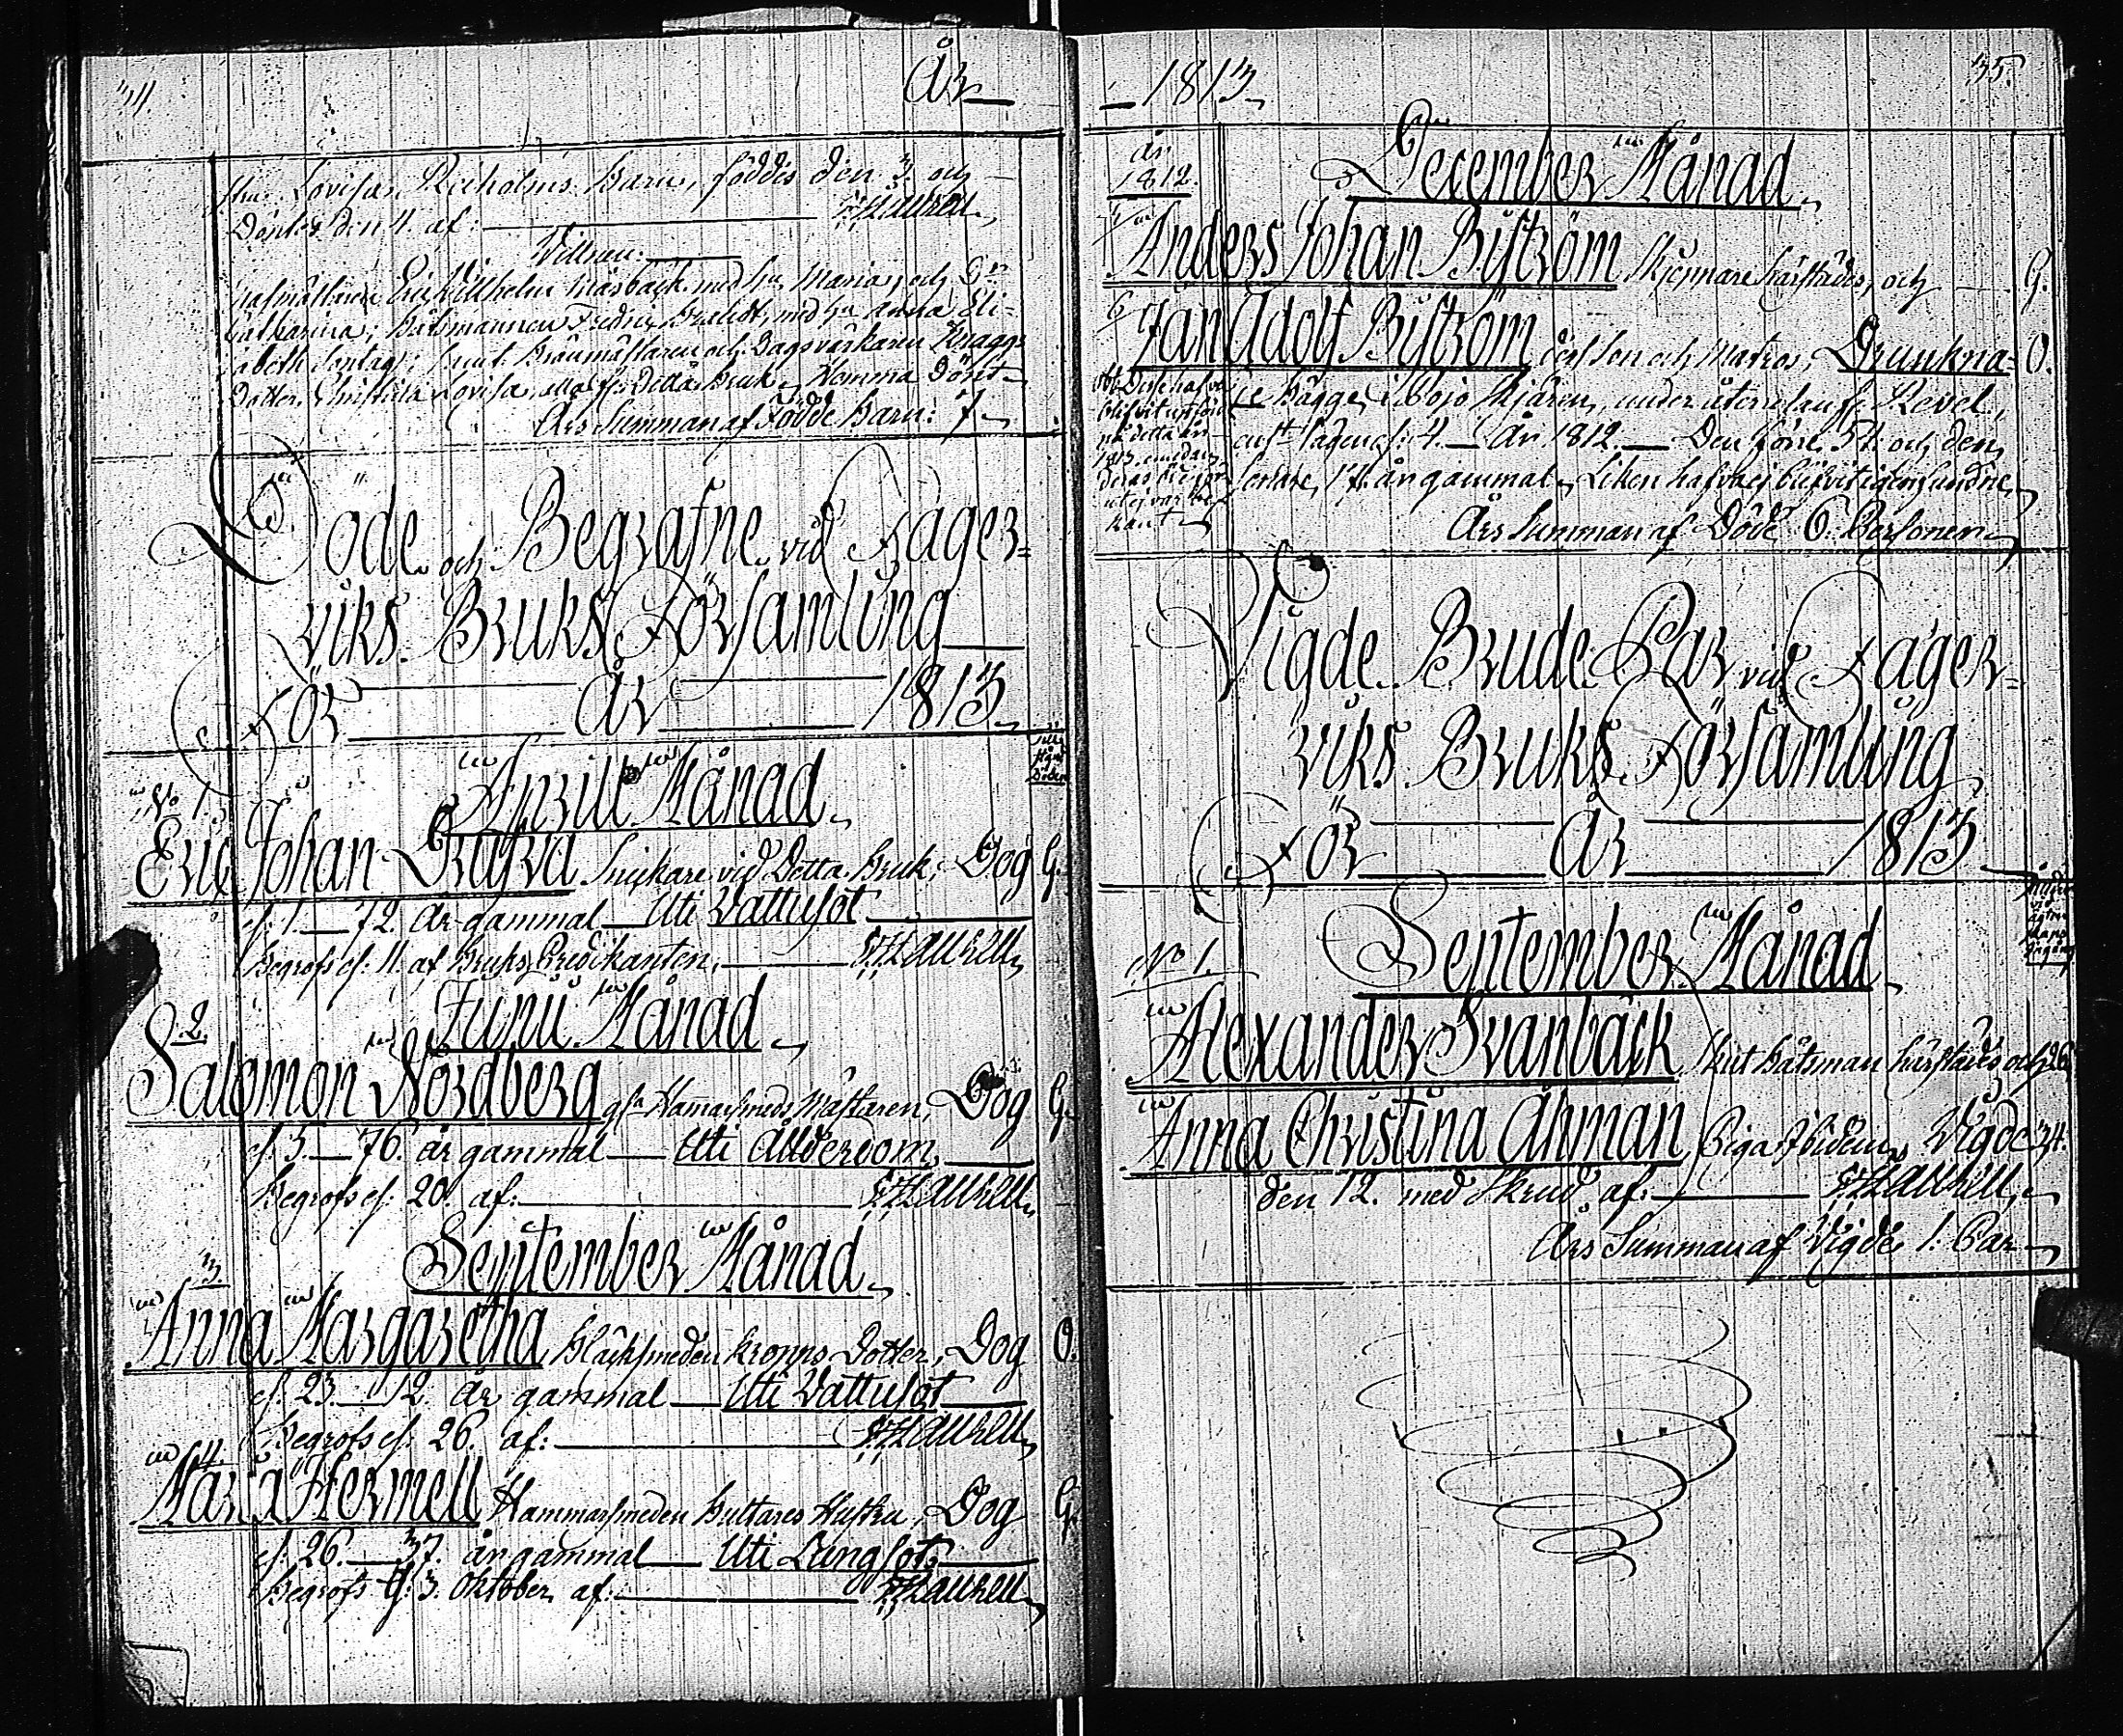 34
År
Lovisa Reiholms Barn, föddes den 3. och
Döptes den 4. af: F:H:Laurell
Wittnen:
Eric Willhelm Kråsback med hu Maria, och Dr
Catharina; Båtsmannen Fredric med hu Anna Eli-
sabeth samt Dagsvärkaren
Dotter Christina Lovisa, alla fr. Detta Bruk, Hemma Döpt
Års Summan af Födde Barn: 7
Döde och Begrafne vid Fager-
viks Bruks Församling
För År 1813
Aprill Månad
No 1.
Eric Johan Snickare vid Detta Bruk, Dog G.
d. 1. 72. År gammal Uti Vattusot
Begrofs d. 11. af Bruks Predikanten, F:H:Laurell
Junii Månad
2.
Salomon Nordberg gl. Hamarsmeds Mästaren, Dog G.
d. 5. 76. år gammal Uti Ållderdom
Begrofs d. 20. af: F:H:Laurell
September Månad
3.
Anna Margaretha Kläcksmeden Kropps Dotter, Dog O.
d. 23. 12. år gammal Uti Vattusot
Begrofs d. 26. af: F:H:Laurell
4.
Maria Hermell Hammarsmeden Hustru, Dog G.
d. 26. 37. år gammal Uti Lungsot
Begrofs d. 3. Oktober af: F:H:Laurell
1813
35.
år
1812.
December Månad
Anders Johan Byström Skjeppare härstädes, och G.
6
Jan Adolf Byström dess Son och Matros, Drunkna- O.
de Bägge i Bojo Skjären, under återresan fr. Revel,
d: 4. År 1812. Den förre 51. och den
sednare, 17. år gammal. Liken hafva ej blifvit igenfundne
Års Summan af Döde 6. Personer
Vigde Brude Par vid Fager-
viks Bruks Församling
För År 1813
September Månad
No 1.
Alexander Svanbäck Skut Båtsman härstädes och 26
Anna Christina Åhman Piga Ibidem, Vigde 34.
den 12. med Skrud af: F:H:Laurell
Års Summan af Vigde 1. Par